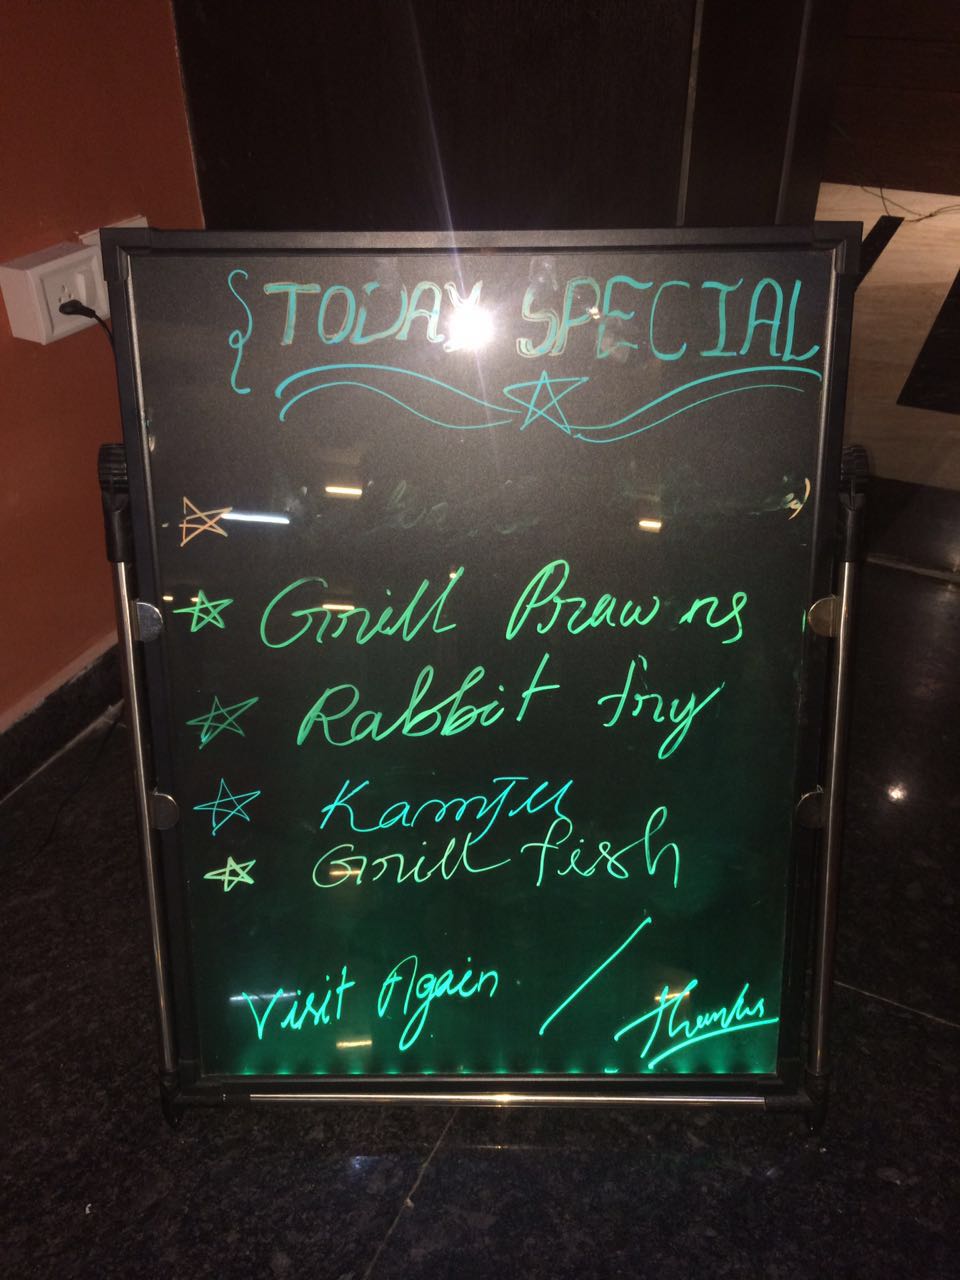 TODAY SPECIAL
Grill Prawns
Rabbit fry
Kamju
Grill fish
Visit Again / Thanks